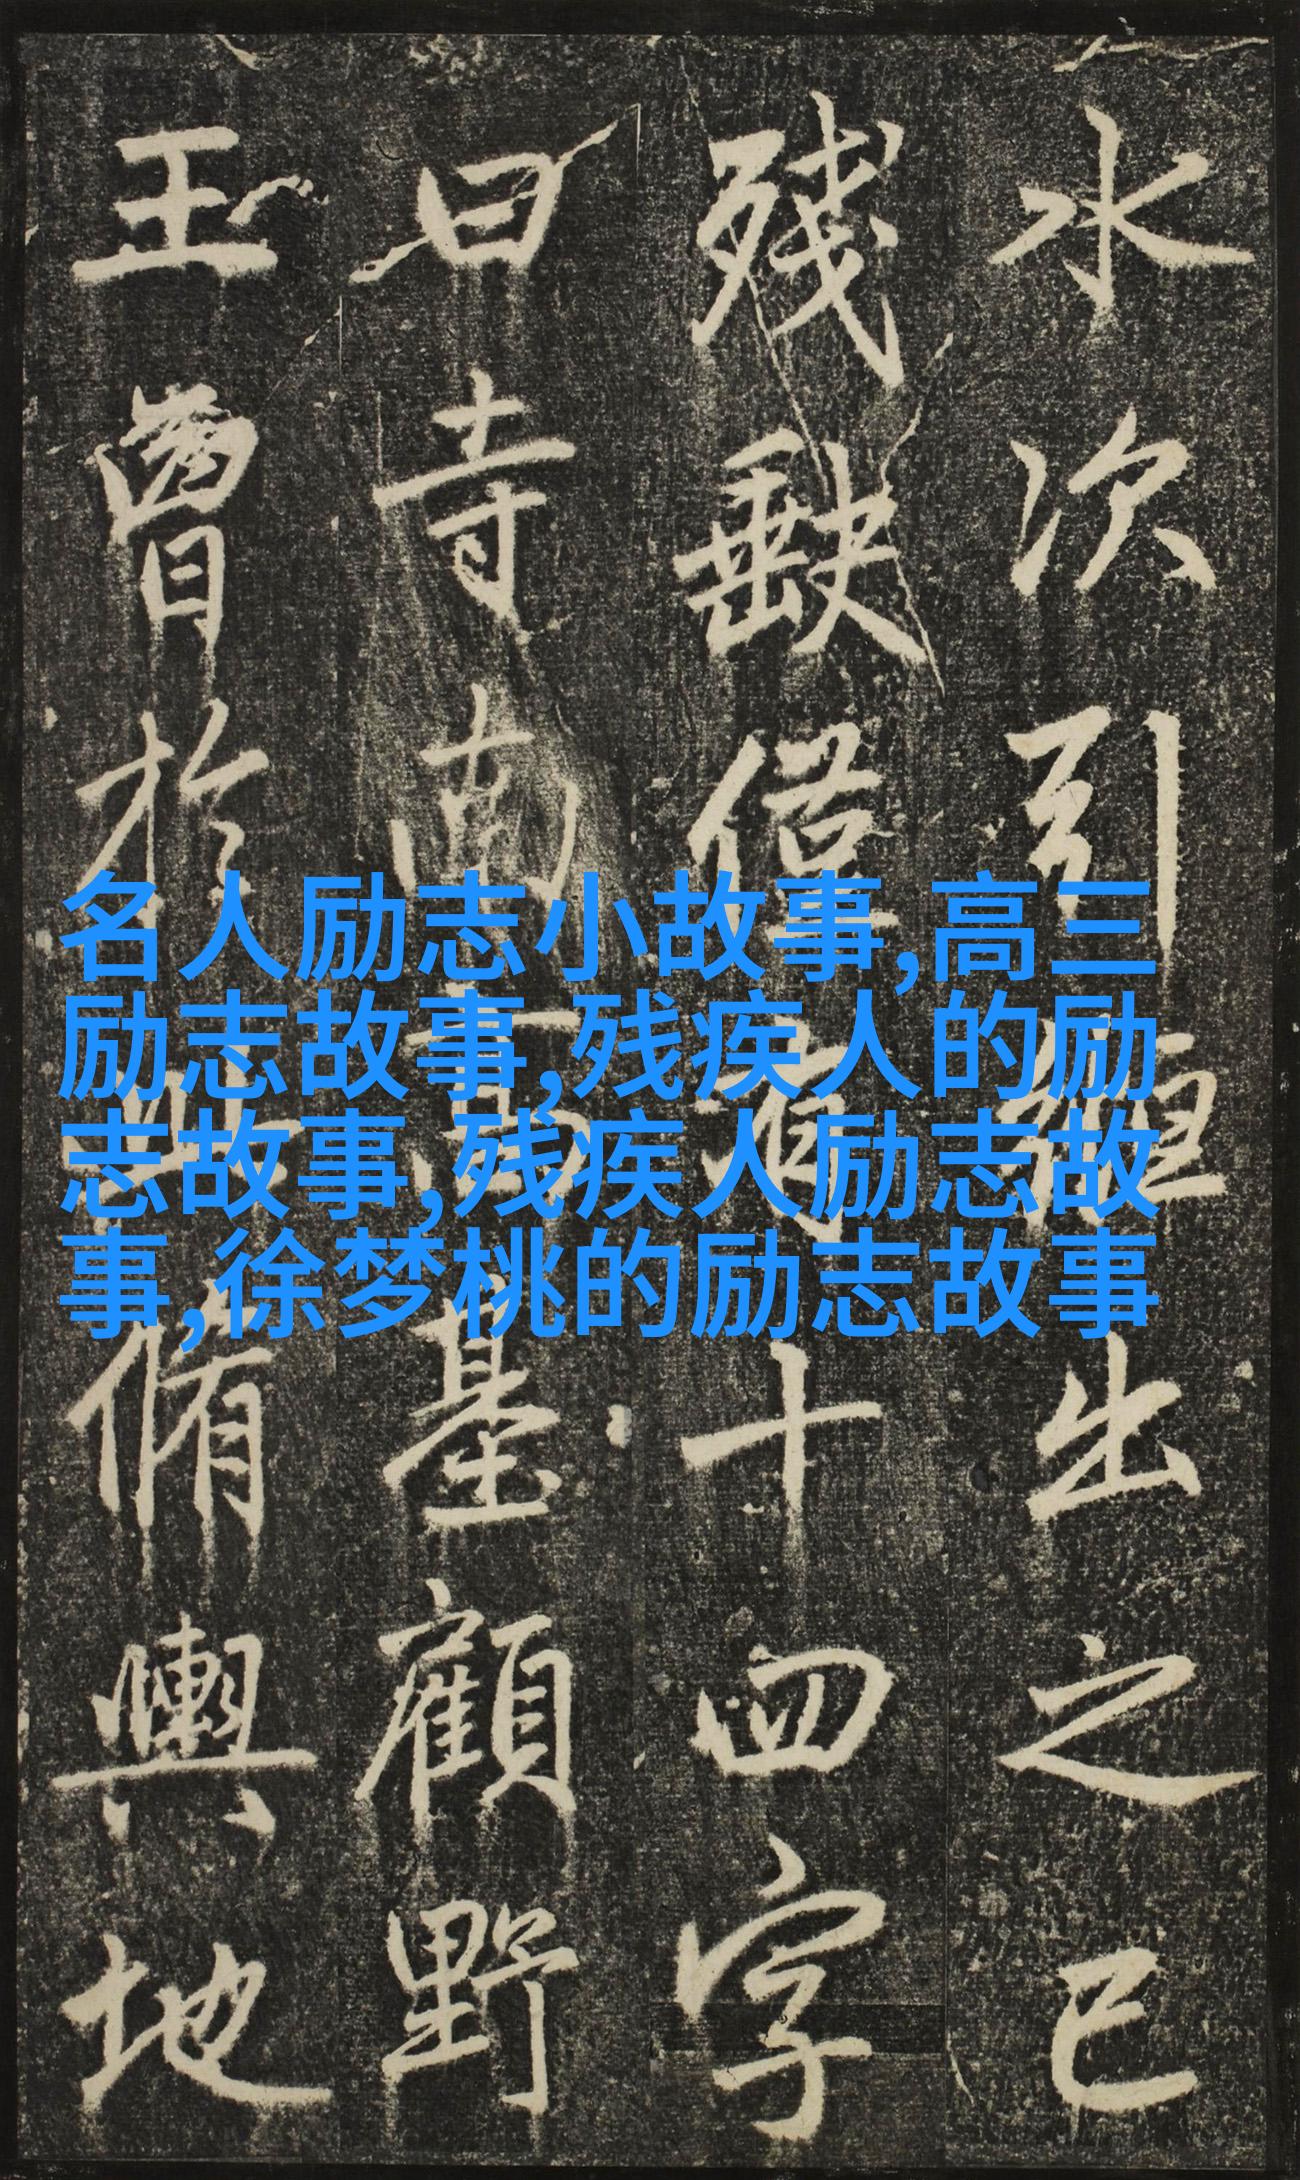 名人励志小故事,高三
励志故事,残疾人的励
志故事,残疾人励志故
事,徐梦桃的励志故事
水次引縆出之已
殘缺僅有十四字
曰寺南高基顧野
王曾於此脩輿地